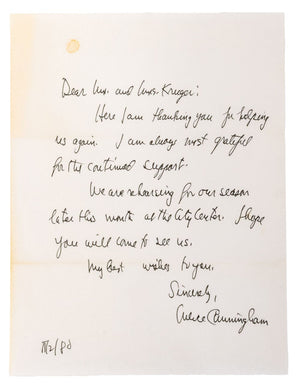 Dear Mr. and Mrs. Krueger:
Here I am thanking you for helping
us again. I am always most grateful
for the continued support.
We are rehearsing for our season
later this month at the City Center. I hope
you will come to see us.
My best wishes to you.
Sincerely,
Merce Cunningham